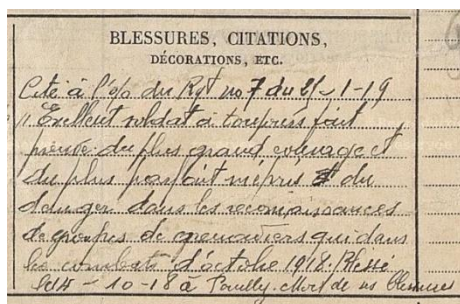 BLESSURES, CITATIONS,
DÉCORATIONS, ETC.
Cité à l'o/o du Rgt no 7 du 25-1-19
Excellent soldat a toujours fait
preuve du plus grand courage et
du plus parfait mépris du
danger dans les reconnaissances
de groupes de grenadiers qui dans
les combats d'octobre 1918. Blessé
le 14-10-18 à Pouilly. Mort de ses blessures